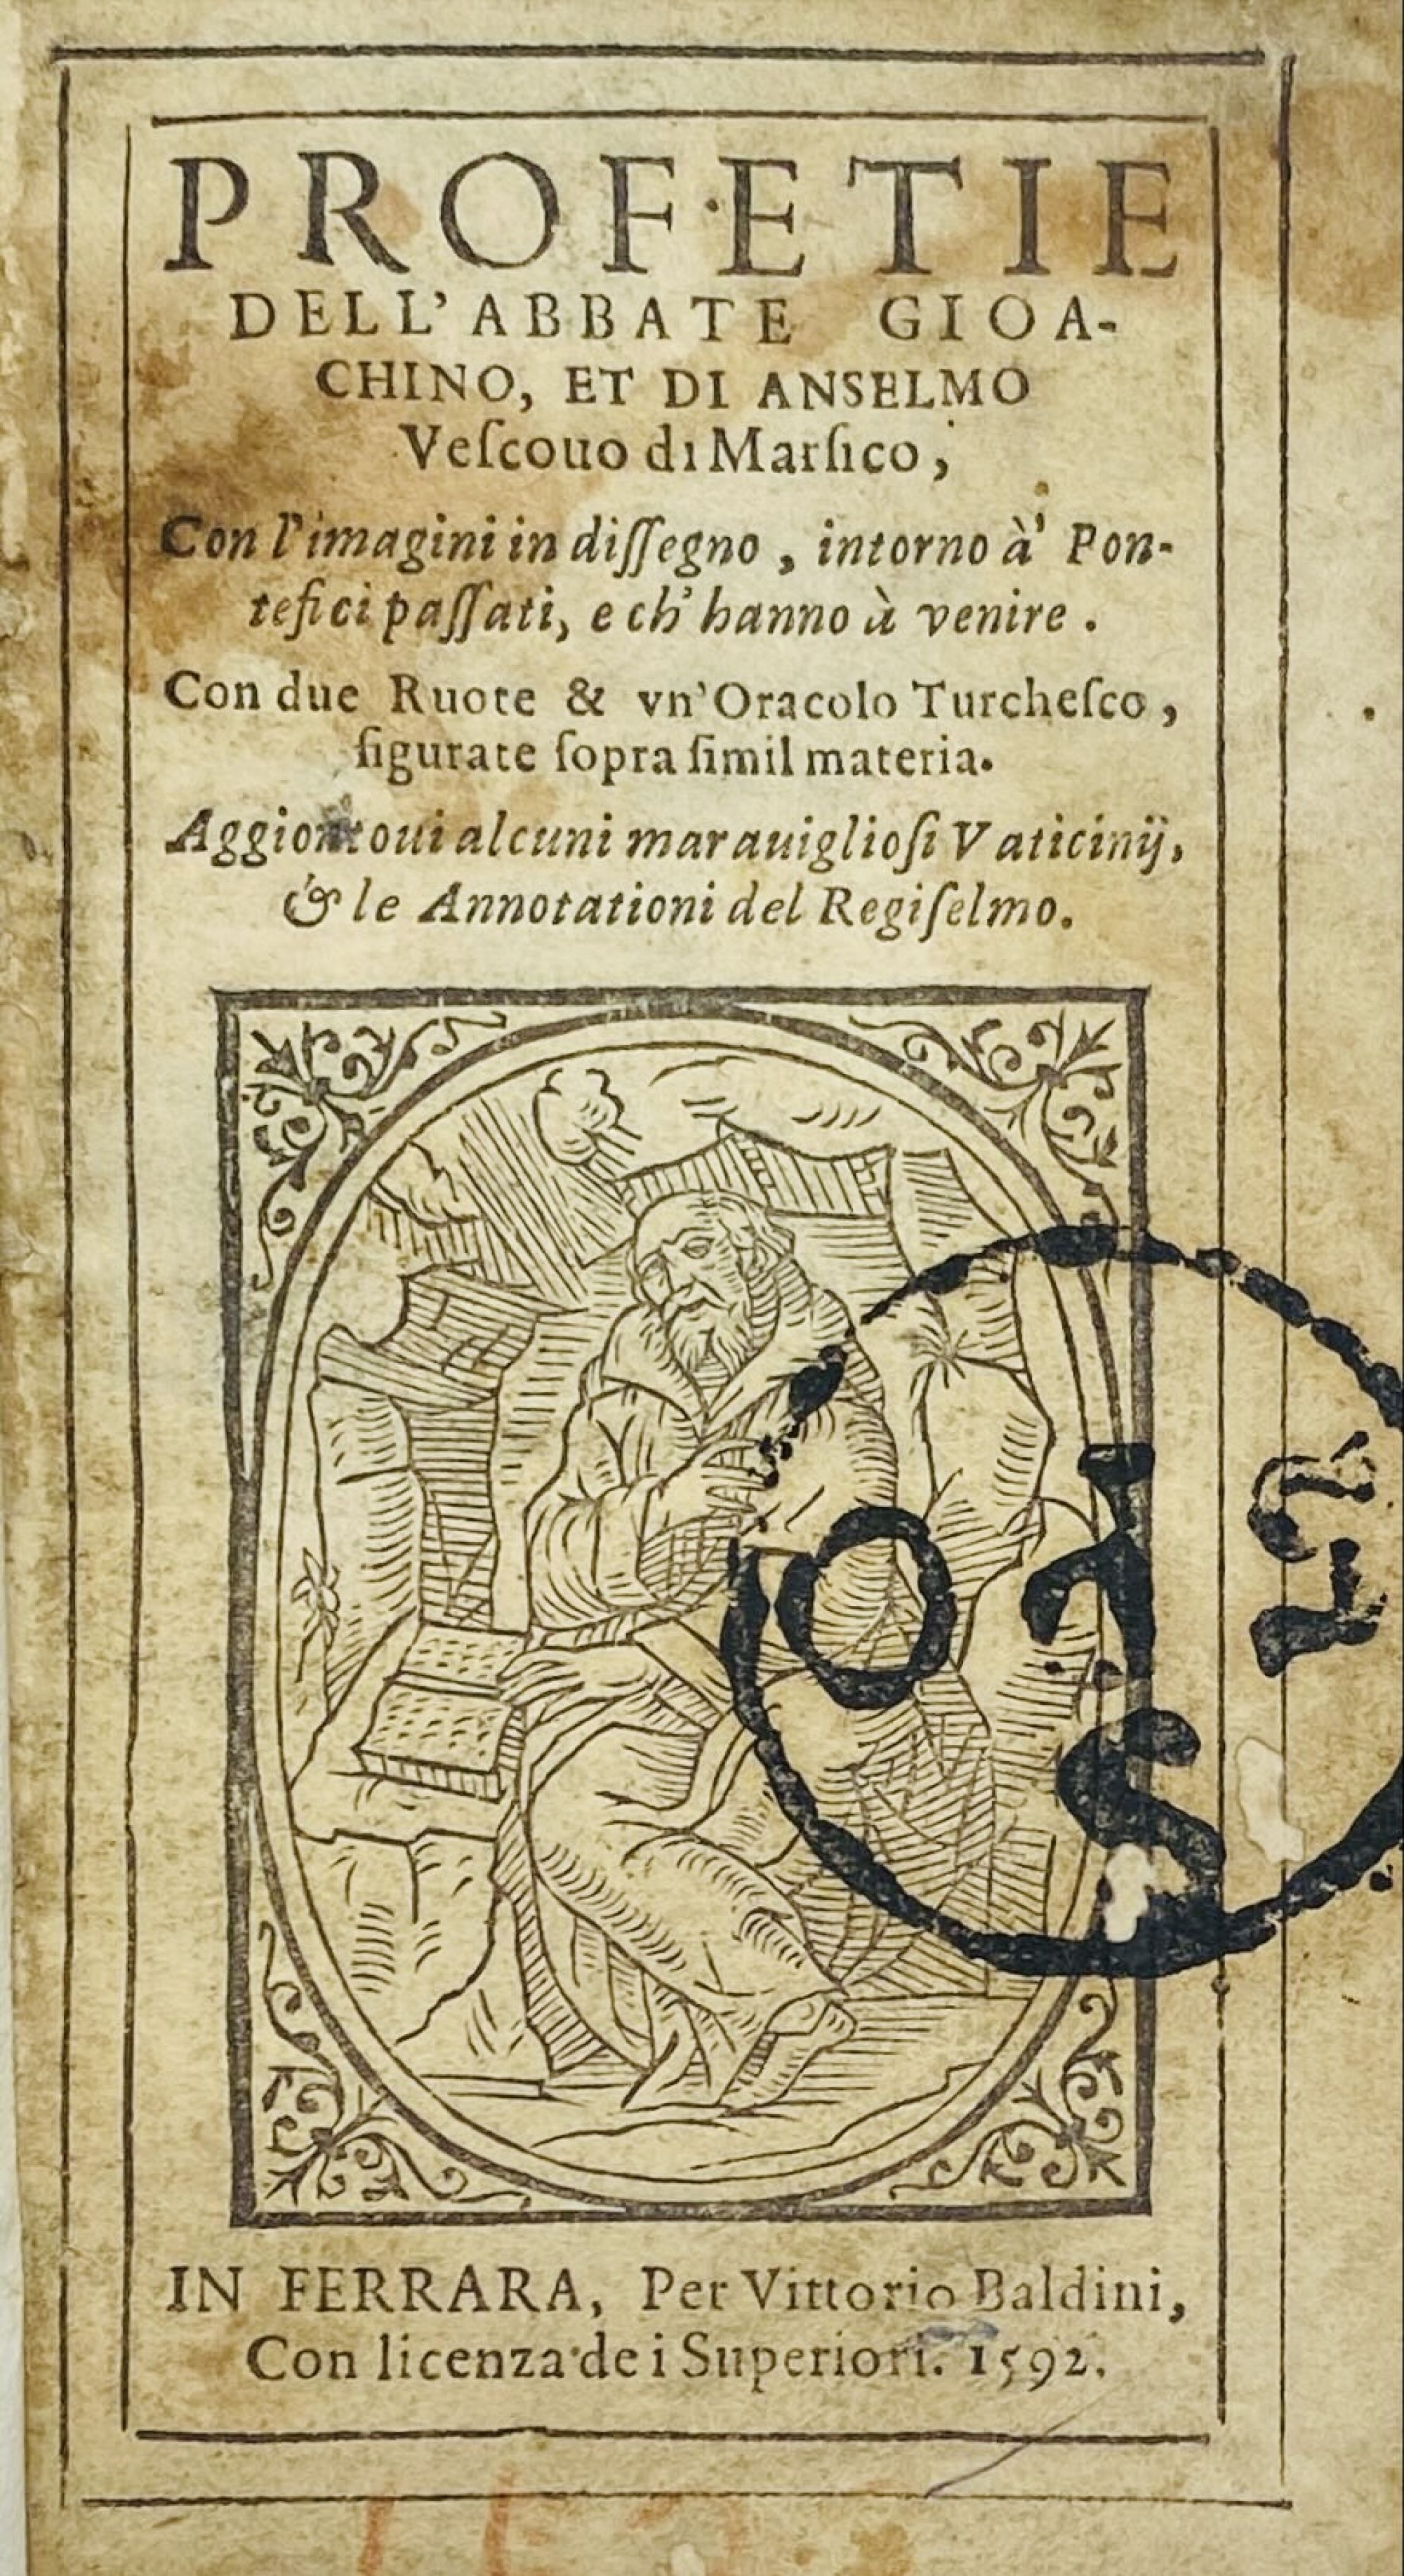 PROFETIE
DELL'ABBATE GIOA-
CHINO, ET DI ANSELMO
Veſcouo di Marſico,
Con l'imagini in diſſegno, intorno à' Pon-
tefici paſſati, e ch'hanno à venire.
Con due Ruote & vn'Oracolo Turcheſco,
figurate ſopra ſimil materia.
Aggiontoui alcuni marauiglioſi Vaticinij,
& le Annotationi del Regiſelmo.
IN FERRARA, Per Vittorio Baldini,
Con licenza de i Superiori. 1592.